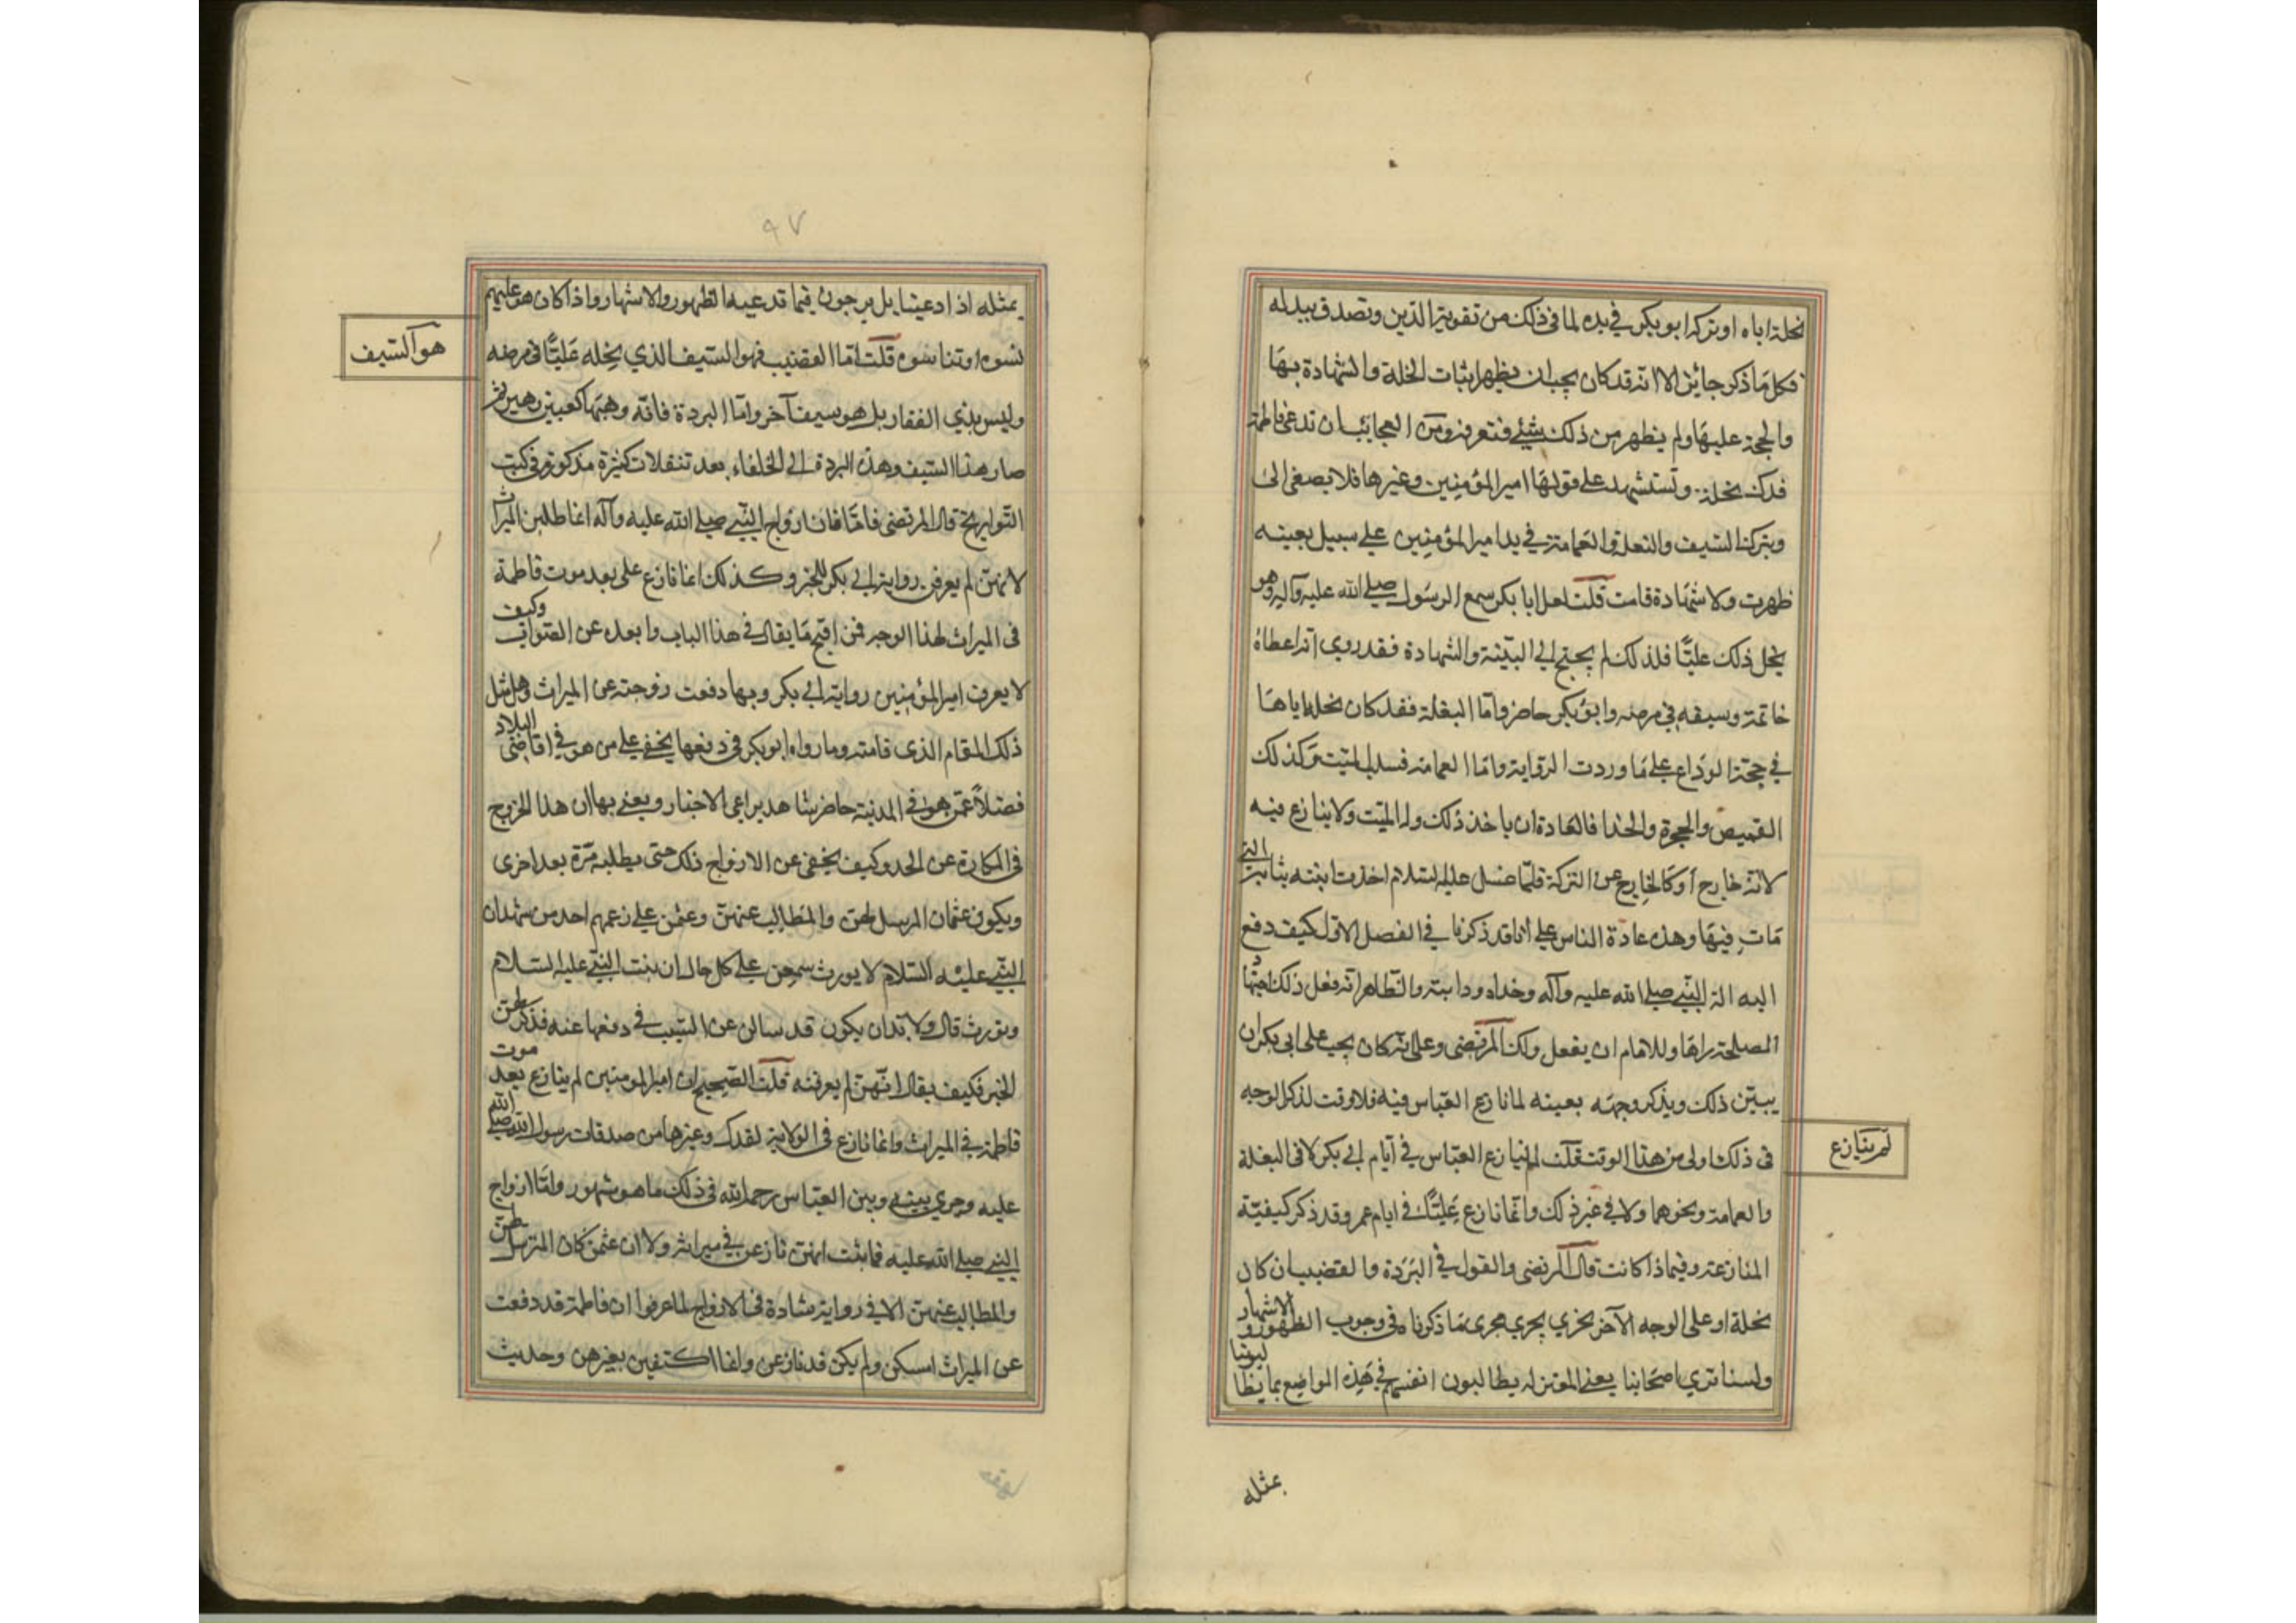 نحلة اباه او تركه ابو بكر في يده لما في ذلك من تقوية الدين وتصدق ببدله
فكل ما ذكر جائز الا انه قد كان يجب ان يظهر اثبات النحلة والشهادة بها
والحجة عليها ولم يظهر من ذلك شيئ فنتعرفه ومن العجائب ان تدعى فاطمة
فدك نحلة وتستشهد على قولها امير المؤمنين وغيرها فلا يصغى الى
ويترك السيف والنعل والعمامة في يد امير المؤمنين على سبيل بعينه
ظهرت ولا شهادة قامت قلت لعل ابا بكر سمع الرسول صلى الله عليه وآله وهو
ينحل ذلك عليًّا فلذلك لم يحتج الى البينة والشهادة فقد روي انه اعطاه
خاتمه وسيفه في مرضه وابو بكر حاضر وامّا البغلة فقد كان نحله اياها
في حجة الوداع على ما وردت الرواية وامّا العمامة فسلب الميت وكذلك
القميص والحجرة والحذا فالعادة ان ياخذ ذلك ولد الميت ولا ينازع فيه
لانه خارج او كالخارج عن التركة فلمّا غسل عليه السلام اخذت ابنته ثيابه التي
مات فيها وهذه عادة الناس على انا قد ذكرنا في الفصل الاول كيف دفع
اليه الة النبي صلى الله عليه وآله وحذاه ودابته والظاهر انه فعل ذلك اجتهادًا
لمصلحة راها وللامام ان يفعل ذلك قال المرتضى وعلى انه كان يجب على ابي بكر ان
يبين ذلك ويذكر وجهه بعينه لما نازع العباس فيه فلا وقت لذكر الوجه
في ذلك اولى من هذا الوقت قلت لم ينازع العباس في ايام ابي بكر لا في البغلة
والعمامة ونحوهما ولا في غير ذلك وانما نازع عليًّا في ايام عمر وقد ذكر كيفية
المنازعة وفيما ذا كانت قال المرتضى والقول في البردة والقضيب ان كان
نحلة او على الوجه الآخر يجري مجرى ما ذكرنا في وجوب الظهور والاشهار
ولسنا نري اصحابنا يعني المعتزلة يطالبون انفسهم في هذه المواضع بما يطالبونا
لم ينازع
بمثله
٩٧
بمثله اذا ادعينا بل يرجون فيما قد عيه الظهور والاشهار واذا كان هو عليهم
نسوه او تناسوه قلت امّا القضيب فهو السيف الذي نحله عليًّا في مرضه
وليس بذي الفقار بل هو سيف آخر وامّا البردة فانه وهبها كعب بن زهير ثم
صار هذا السيف وهذه البردة الى الخلفاء بعد تنقلات كثيرة مذكورة في كتب
التواريخ قال المرتضى فامّا فان ازواج النبي صلى الله عليه وآله انما طلبن الميراث
لانهن لم يعرفن رواية ابي بكر للخبر وكذلك انما نازع على بعد موت فاطمة
في الميراث لهذا الوجه فمن اقبح ما يقال في هذا الباب وابعده عن الصواب وكيف
لا يعرف امير المؤمنين رواية ابي بكر وبها دفعت زوجته عن الميراث وهل مثل
ذلك المقام الذي قامته وما رواه ابو بكر في دفعها يخفى على من هو في اقاصي البلاد
فضلاً عمّن هو في المدينة حاضر شاهد يراعي الاخبار ويعنى بها ان هذا الخروج
في المكابرة عن الحد وكيف يخفى عن الازواج ذلك حتى يطلبه مرة بعد اخرى
ويكون عثمان المرسل لهن والمطالب عنهن وعثمن على زعمهم احد من شهد ان
النبي عليه السلام لا يورث سمعن على كل حال ان بنت النبي عليه السلام
لم تورث قال ولا بد ان يكون قد سالن عن السبب في دفعها عنه فذكر لهن
الخبر فكيف يقال انهن لم يعرفنه قلت الصحيح ان امير المومنين لم ينازع بعد موت
فاطمة في الميراث وانما نازع في الولاية لفدك وغيرها من صدقات رسول الله صلى الله
عليه وجري بينه وبين العباس رحمه الله في ذلك ما هو مشهور وامّا ازواج
النبي صلى الله عليه فما ثبت انهن نازعن في ميراثه ولا ان عثمن كان المترسل لهن
والمطالب عنهن الا في رواية شاذة في الازواج لما عرفوا ان فاطمة قد دفعت
عن الميراث امسكن ولم يكن قد نازعن وانما اكتفين بغيرهن وحديث
هو السيف